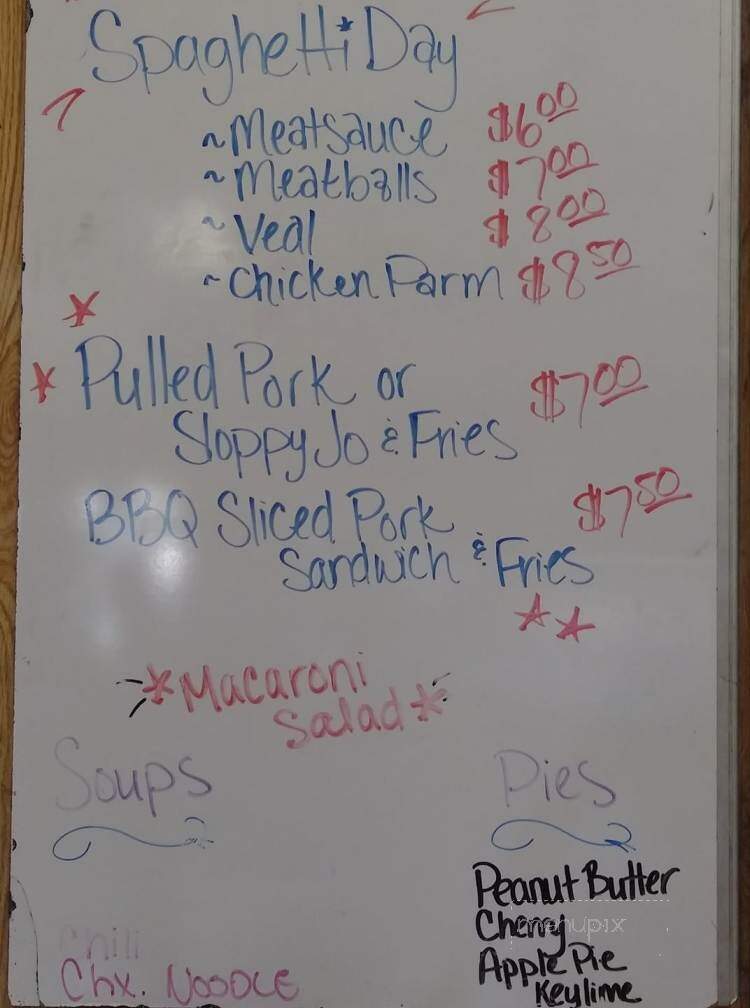 Spaghetti Day
~Meatsauce $6.00
~Meatballs $7.00
~Veal $8.00
~Chicken Parm $8.50
Pulled Pork or
Sloppy Jo & Fries $7.00
BBQ Sliced Pork $7.50
Sandwich & Fries
*Macaroni
Salad*
Soups
Chili
Chx. Noodle
Pies
Peanut Butter
Cherry
menupix
Apple Pie
Keylime